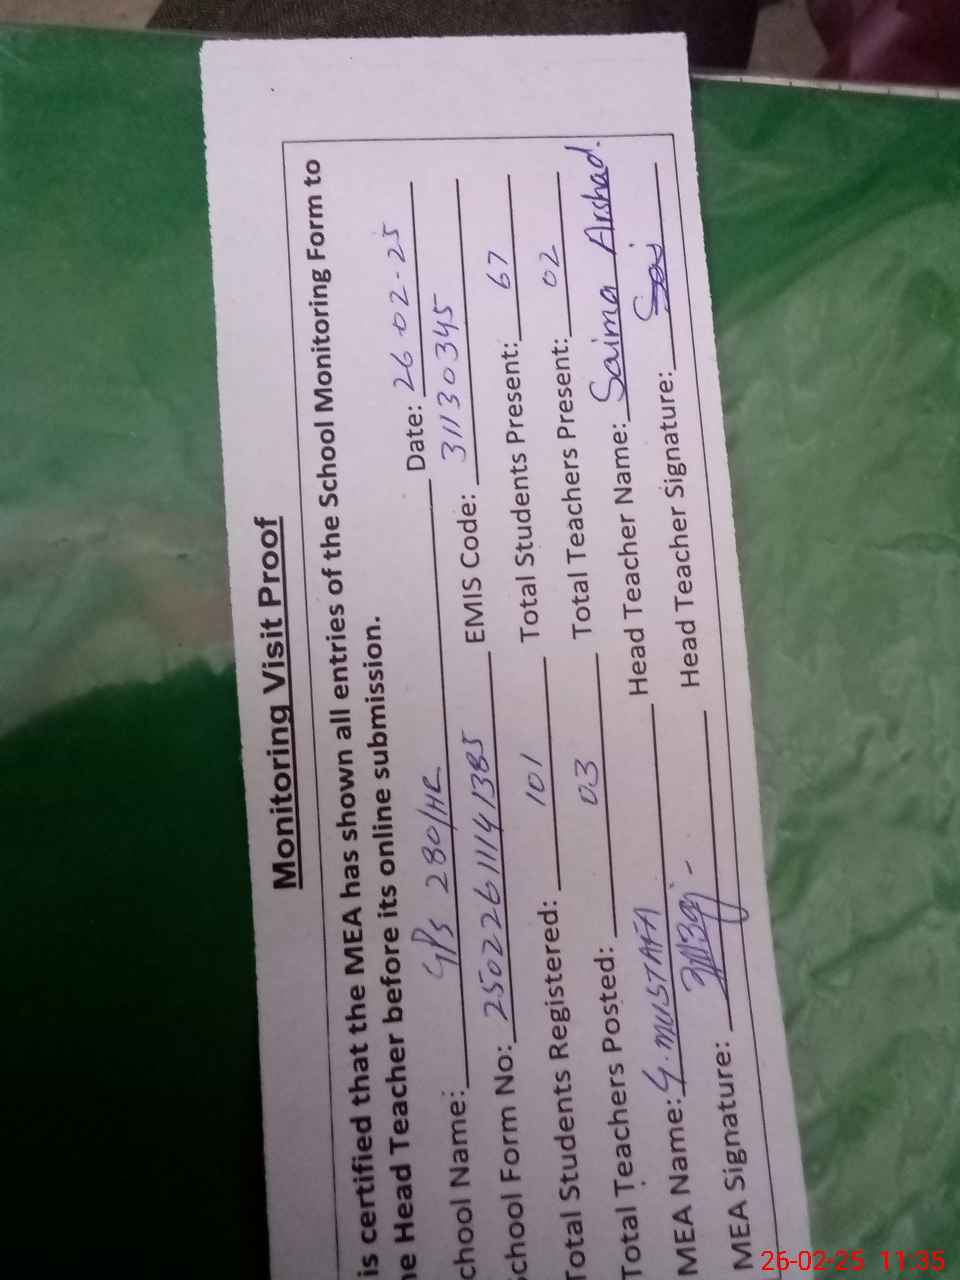 Monitoring Visit Proof
is certified that the MEA has shown all entries of the School Monitoring Form to
he Head Teacher before its online submission.
chool Name: GPS 280/HR Date: 26-02-25
chool Form No: 25022611141385 EMIS Code: 31130345
Total Students Registered: 101 Total Students Present: 67
Total Teachers Posted: 03 Total Teachers Present: 02
MEA Name: G.MUSTAFA Head Teacher Name: Saima Arshad.
MEA Signature: Head Teacher Signature:
26-02-25 11:35